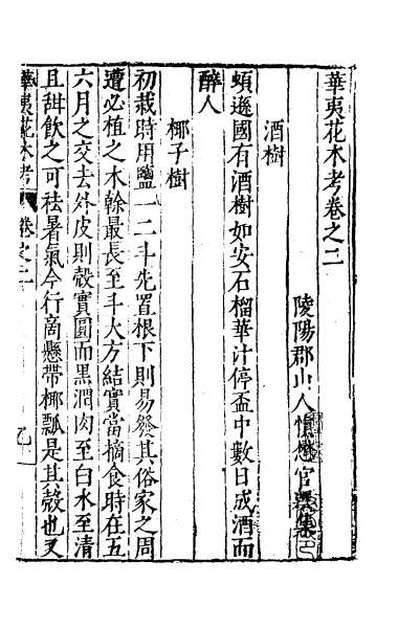 華夷花木考卷之二
陵陽郡山人慎懋官譔集
酒樹
頓遜國有酒樹如安石榴華汁停盃中數日成酒而
醉人
椰子樹
初栽時用鹽一二斗先置根下則易發其俗家之周
遭必植之木榦最長至斗大方結實當摘食時在五
六月之交去外皮則殼實圓而黑潤肉至白水至清
且甜飲之可袪暑氣今行商懸帶椰瓢是其殼也又
華夷花木考 卷之二